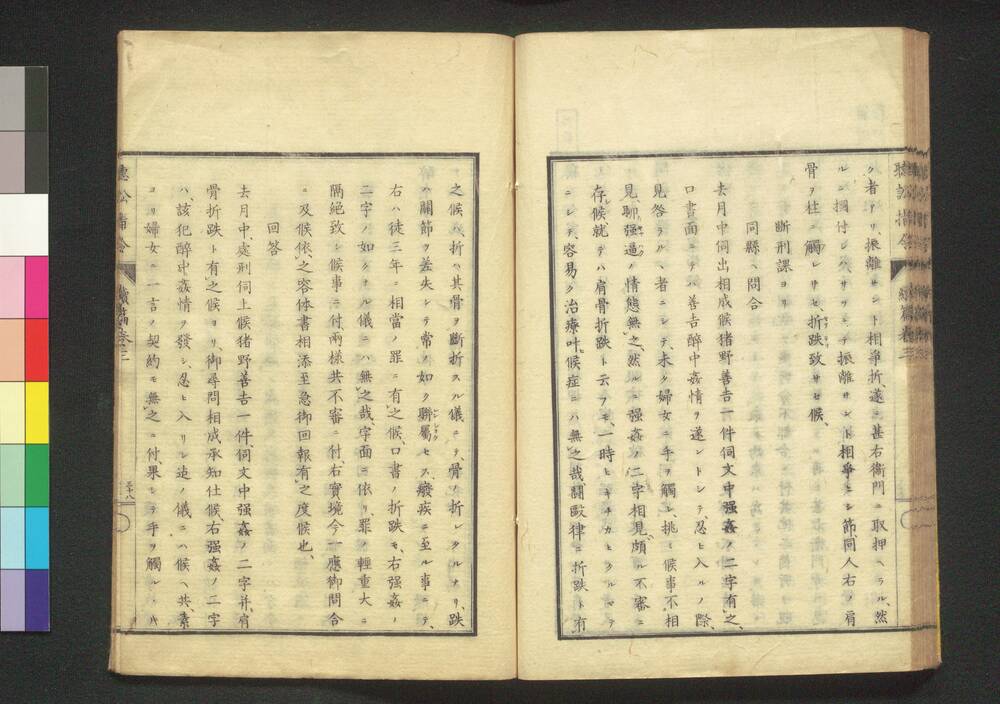 ク者アリ、振離サントト相爭折、遂ニ甚右衛門ニ取押ヘラル、然
ルニ摑付シハサツニテ振離サントト相爭ヒシ節、同人右ノ肩
骨ヲ柱ニ觸レサセ折跌致サセ候、
斷刑課ヨリ
同縣ヘ問合
去月中伺出相成候猪野善吉一件伺文中强姦ノ二字有之、
口書面ニテハ善吉醉中姦情ヲ遂ントシテ、忍ヒ入ルノ際、
見咎ラル、者ニシテ、未タ婦女ニ手ヲ觸レ、挑ミ候事不相
見、聊强逼ノ情態無之、然ルニ强姦ノ二字相見、頗ル不審ニ
存候、就テハ肩骨折跌ト云フモ、一時ヒキチカヒタルマテ
ニシテ、容易ク治療叶ヒ候症ニハ無之哉、鬪毆律ニ折跌ト有
之候ハ、折ハ其骨ヲ斷折スル儀ニテ、骨ノ折レタルナリ、跌
ハ關節ヲ差失シテ常ノ如ク聯屬セス、癈疾ニ至ル事ニテ、
右ハ徒三年ニ相當ノ罪ニ有之候、口書ノ折跌モ、右强姦ノ
二字ノ如クナル儀ニハ無之哉、字面ニ依リ罪ノ輕重大ニ
隔絶致シ候事ニ付、兩樣共不審ニ付、右實境今一應御問合
ニ及候、依之容体書相添至急御回報有之度候也、
回答
去月中、處刑伺上候猪野善吉一件、伺文中强姦ノ二字幷、肩
骨折跌ト有之候ヨリ、御尋問相成承知仕候、右强姦ノ二字
ハ、該犯醉中姦情ヲ發シ、忍ヒ入リシ迠ノ儀ニハ候ヘ共、素
ヨリ婦女ニ一言ノ契約モ無之ニ付、果シテ手ヲ觸ル、ハ
聽訟指令
續篇卷三
三十八